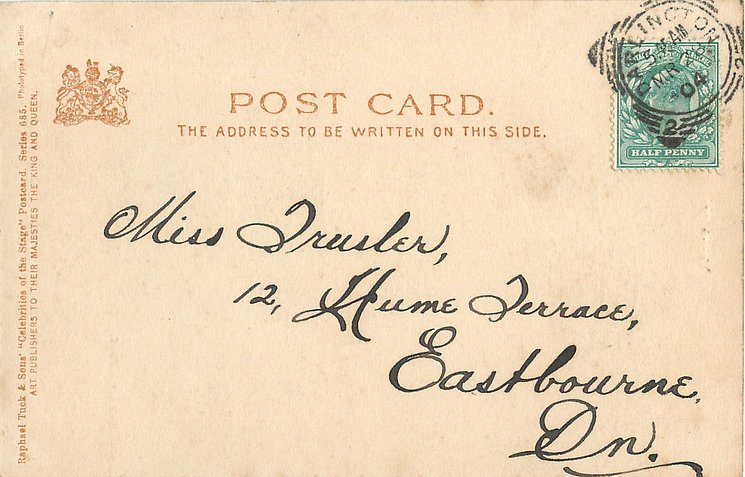 POST CARD.
THE ADDRESS TO BE WRITTEN ON THIS SIDE.
Raphael Tuck & Sons' "Celebrities of the Stage" Postcard. Series 685. Phototyped in Berlin
ART PUBLISHERS TO THEIR MAJESTIES THE KING AND QUEEN.
DARLINGTON
MR
04
2
HALF PENNY
Miss Trusler,
12, Hume Terrace,
Eastbourne,
Dn.